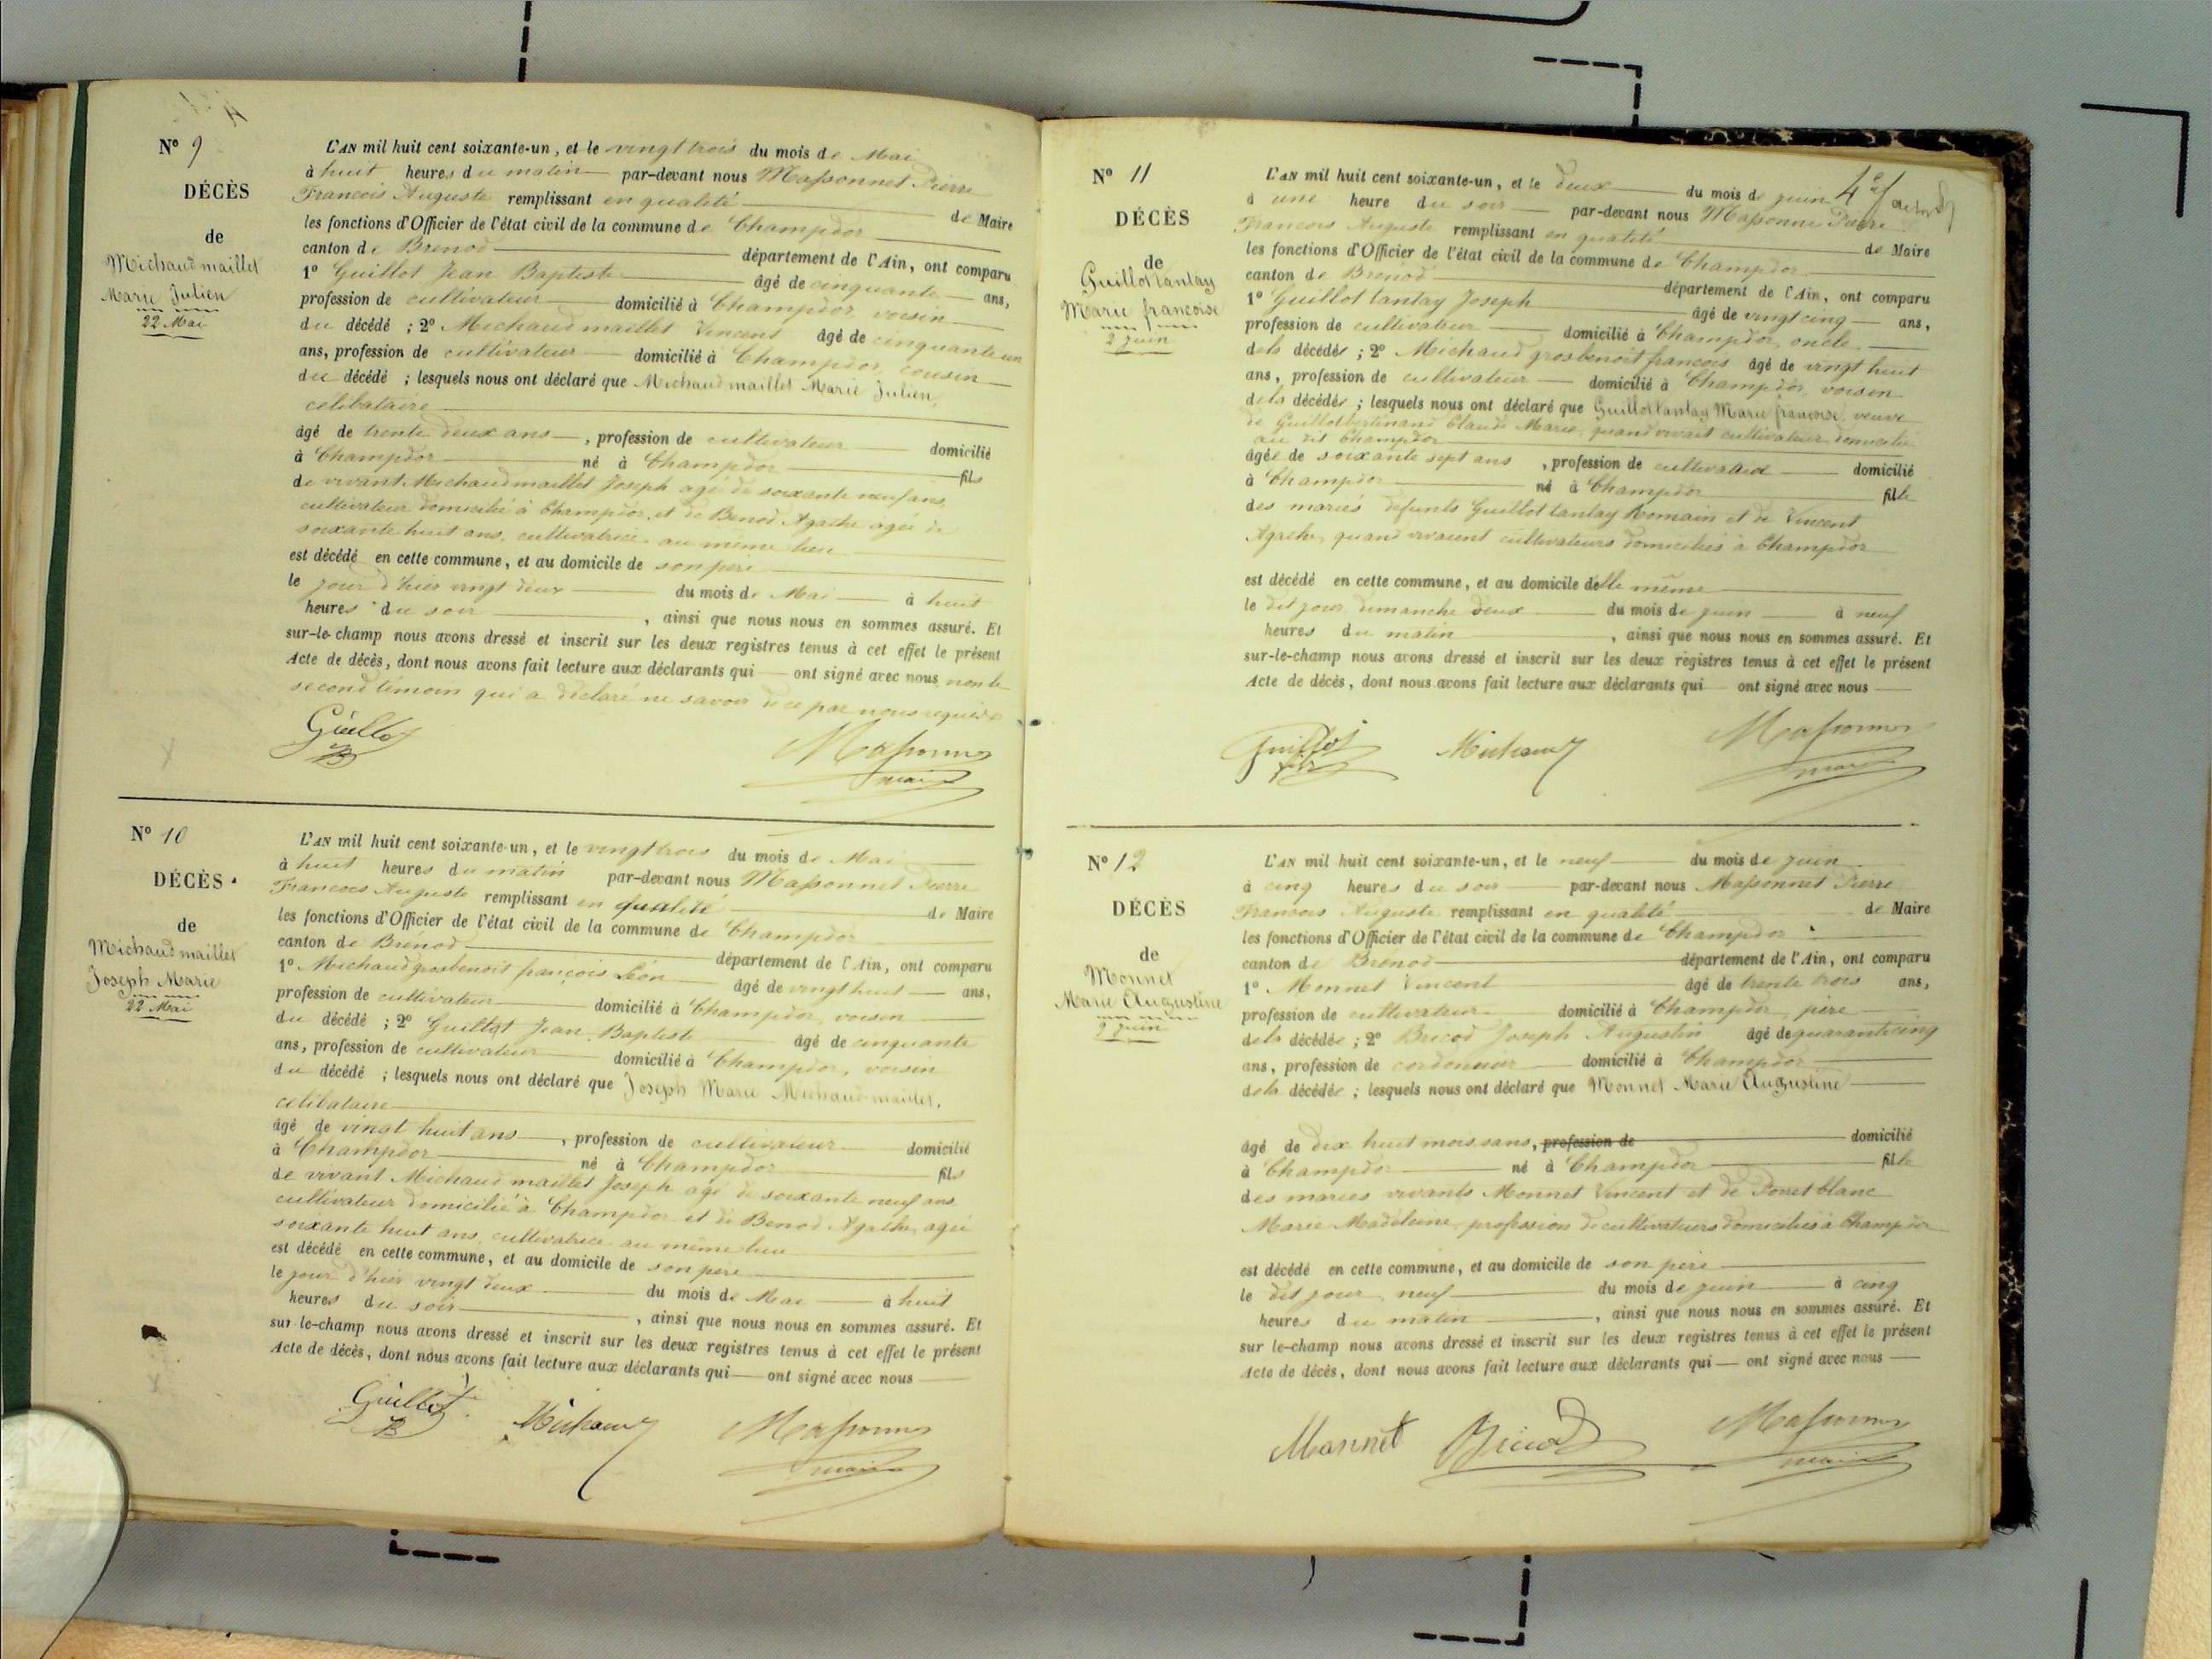 N° 9
DÉCÈS
de
Michaud maillet
Marie Julien
22 Mai
L'AN mil huit cent soixante-un, et le vingt trois du mois de Mai
à huit heures du matin par-devant nous Massonnet Pierre
Francois Auguste remplissant en qualité de Maire
les fonctions d'Officier de l'état civil de la commune de Champdor
canton de Brenod département de l'Ain, ont comparu
1° Guillot Jean Baptiste âgé de cinquante ans,
profession de cultivateur domicilié à Champdor, voisin
du décédé ; 2° Michaud maillet Vincent âgé de cinquante un
ans, profession de cultivateur domicilié à Champdor, cousin
du décédé ; lesquels nous ont déclaré que Michaud maillet Marie Julien,
celibataire
âgé de trente deux ans, profession de cultivateur domicilié
à Champdor né à Champdor fils
de vivant Michaud maillet Joseph agé de soixante neuf ans,
cultivateur domicilié à Champdor, et de Benod Agathe agée de
soixante huit ans, cultivatrice au même lieu
est décédé en cette commune, et au domicile de son père
le jour d'hier vingt deux du mois de Mai à huit
heures du soir, ainsi que nous nous en sommes assuré. Et
sur-le-champ nous avons dressé et inscrit sur les deux registres tenus à cet effet le présent
Acte de décès, dont nous avons fait lecture aux déclarants qui ont signé avec nous non le
second témoin qui a déclaré ne savoir de ce par nous requis
Guillot
JB
Massonnet
maire
N° 10
DÉCÈS
de
Michaud maillet
Joseph Marie
22 Mai
L'AN mil huit cent soixante-un, et le vingt trois du mois de Mai
à huit heures du matin par-devant nous Massonnet Pierre
Francois Auguste remplissant en qualité de Maire
les fonctions d'Officier de l'état civil de la commune de Champdor
canton de Brenod département de l'Ain, ont comparu
1° Michaud grosbenoit françois Léon âgé de vingt huit ans,
profession de cultivateur domicilié à Champdor, voisin
du décédé ; 2° Guillot Jean Baptiste âgé de cinquante
ans, profession de cultivateur domicilié à Champdor, voisin
du décédé ; lesquels nous ont déclaré que Joseph Marie Michaud maillet,
celibataire
âgé de vingt huit ans, profession de cultivateur domicilié
à Champdor né à Champdor fils
de vivant Michaud maillet Joseph agé de soixante neuf ans
cultivateur domicilié à Champdor et de Benod Agathe, agée
soixante huit ans, cultivatrice au même lieu
est décédé en cette commune, et au domicile de son père
le jour d'hier vingt deux du mois de Mai à huit
heures du soir, ainsi que nous nous en sommes assuré. Et
sur-le-champ nous avons dressé et inscrit sur les deux registres tenus à cet effet le présent
Acte de décès, dont nous avons fait lecture aux déclarants qui ont signé avec nous
Guillot
JB
Michaud
Massonnet
maire
N° 11
DÉCÈS
de
Guillot tantay
Marie francoise
2 Juin
L'AN mil huit cent soixante-un, et le deux du mois de juin
à une heure du soir par-devant nous Massonne Pierre
Francois Auguste remplissant en qualité de Maire
les fonctions d'Officier de l'état civil de la commune de Champdor
canton de Brenod département de l'Ain, ont comparu
1° Guillot tantay Joseph âgé de vingt cinq ans,
profession de cultivateur domicilié à Champdor, oncle
dela décédée ; 2° Michaud grosbenoit francois âgé de vingt huit
ans, profession de cultivateur domicilié à Champdor, voisin
dela décédée ; lesquels nous ont déclaré que Guillot tantay Marie francoise, veuve
de Guillot bertinand Claude Marie, quand vivait cultivateur domicilié
au dit Champdor
âgée de soixante sept ans, profession de cultivatrice domicilié
à Champdor né à Champdor fille
des mariés defunts Guillot tantay Romain et de Vincent
Agathe, quand vivaient cultivateurs domiciliés à Champdor
est décédé en cette commune, et au domicile delle même
le dit jour dimanche deux du mois de juin à neuf
heures du matin, ainsi que nous nous en sommes assuré. Et
sur-le-champ nous avons dressé et inscrit sur les deux registres tenus à cet effet le présent
Acte de décès, dont nous avons fait lecture aux déclarants qui ont signé avec nous
Guillot
Michaud
Massonnet
maire
N° 12
DÉCÈS
de
Monnet
Marie Augustine
9 Juin
L'AN mil huit cent soixante-un, et le neuf du mois de juin
à cinq heures du soir par-devant nous Massonnet Pierre
Francois Auguste remplissant en qualité de Maire
les fonctions d'Officier de l'état civil de la commune de Champdor
canton de Brenod département de l'Ain, ont comparu
1° Monnet Vincent âgé de trente trois ans,
profession de cultivateur domicilié à Champdor, père
dela décédée ; 2° Bricod Joseph Augustin âgé de quarante cinq
ans, profession de cordonnier domicilié à Champdor
dela décédée ; lesquels nous ont déclaré que Monnet Marie Augustine
âgé de dix huit mois, sans, profession de domicilié
à Champdor né à Champdor fille
des maries vivants Monnet Vincent et de Ponet blanc
Marie Madeleine, profession de cultivateurs domiciliés à Champdor
est décédé en cette commune, et au domicile de son père
le dit jour neuf du mois de juin à cinq
heures du matin, ainsi que nous nous en sommes assuré. Et
sur-le-champ nous avons dressé et inscrit sur les deux registres tenus à cet effet le présent
Acte de décès, dont nous avons fait lecture aux déclarants qui ont signé avec nous
Monnet
Bricod
Massonnet
maire